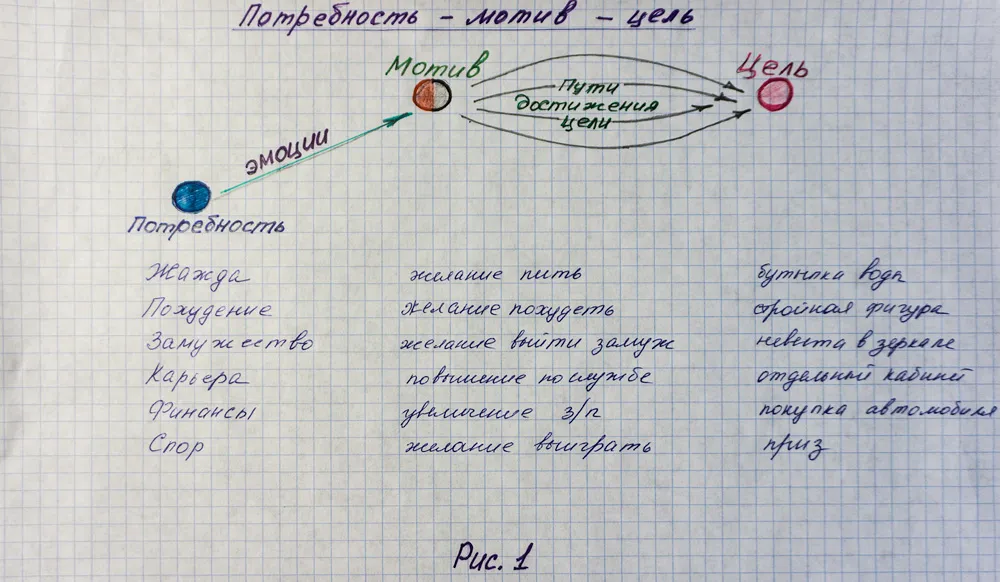 Потребность - мотив - цель
Мотив
Цель
Пути
достижения
цели
эмоции
Потребность
Жажда желание пить бутылка воды
Похудение желание похудеть стройная фигура
Замужество желание выйти замуж невеста в зеркале
Карьера повышение по службе отдельный кабинет
Финансы увеличение з/п покупка автомобиля
Спор желание выиграть приз
Рис. 1